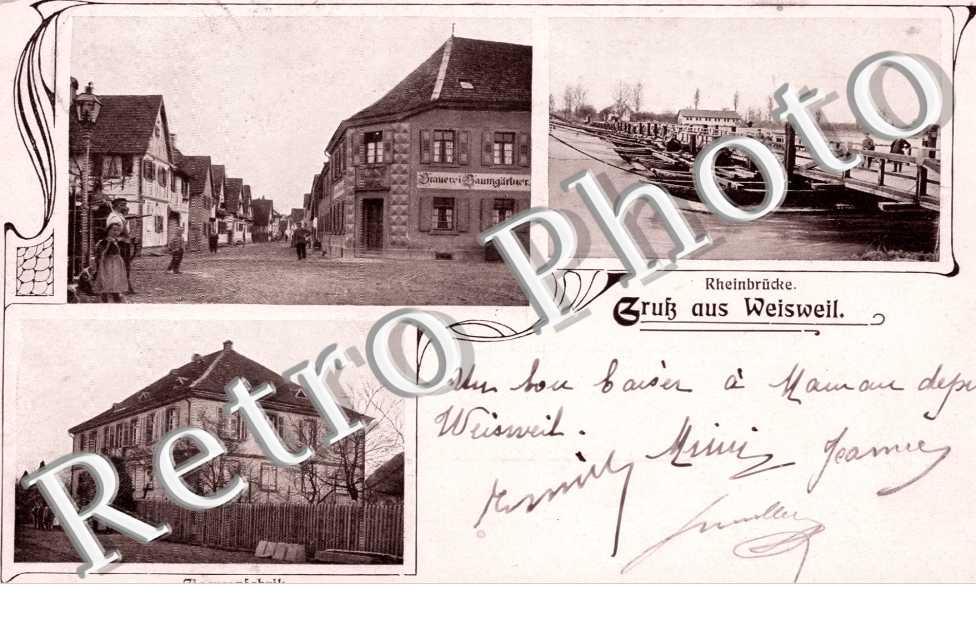 Brauerei Baumgärtner.
Rheinbrücke.
Gruß aus Weisweil.
Retro Photo
Un bon baiser à Maman depu
Weisweil.
Mimi
Jeanne